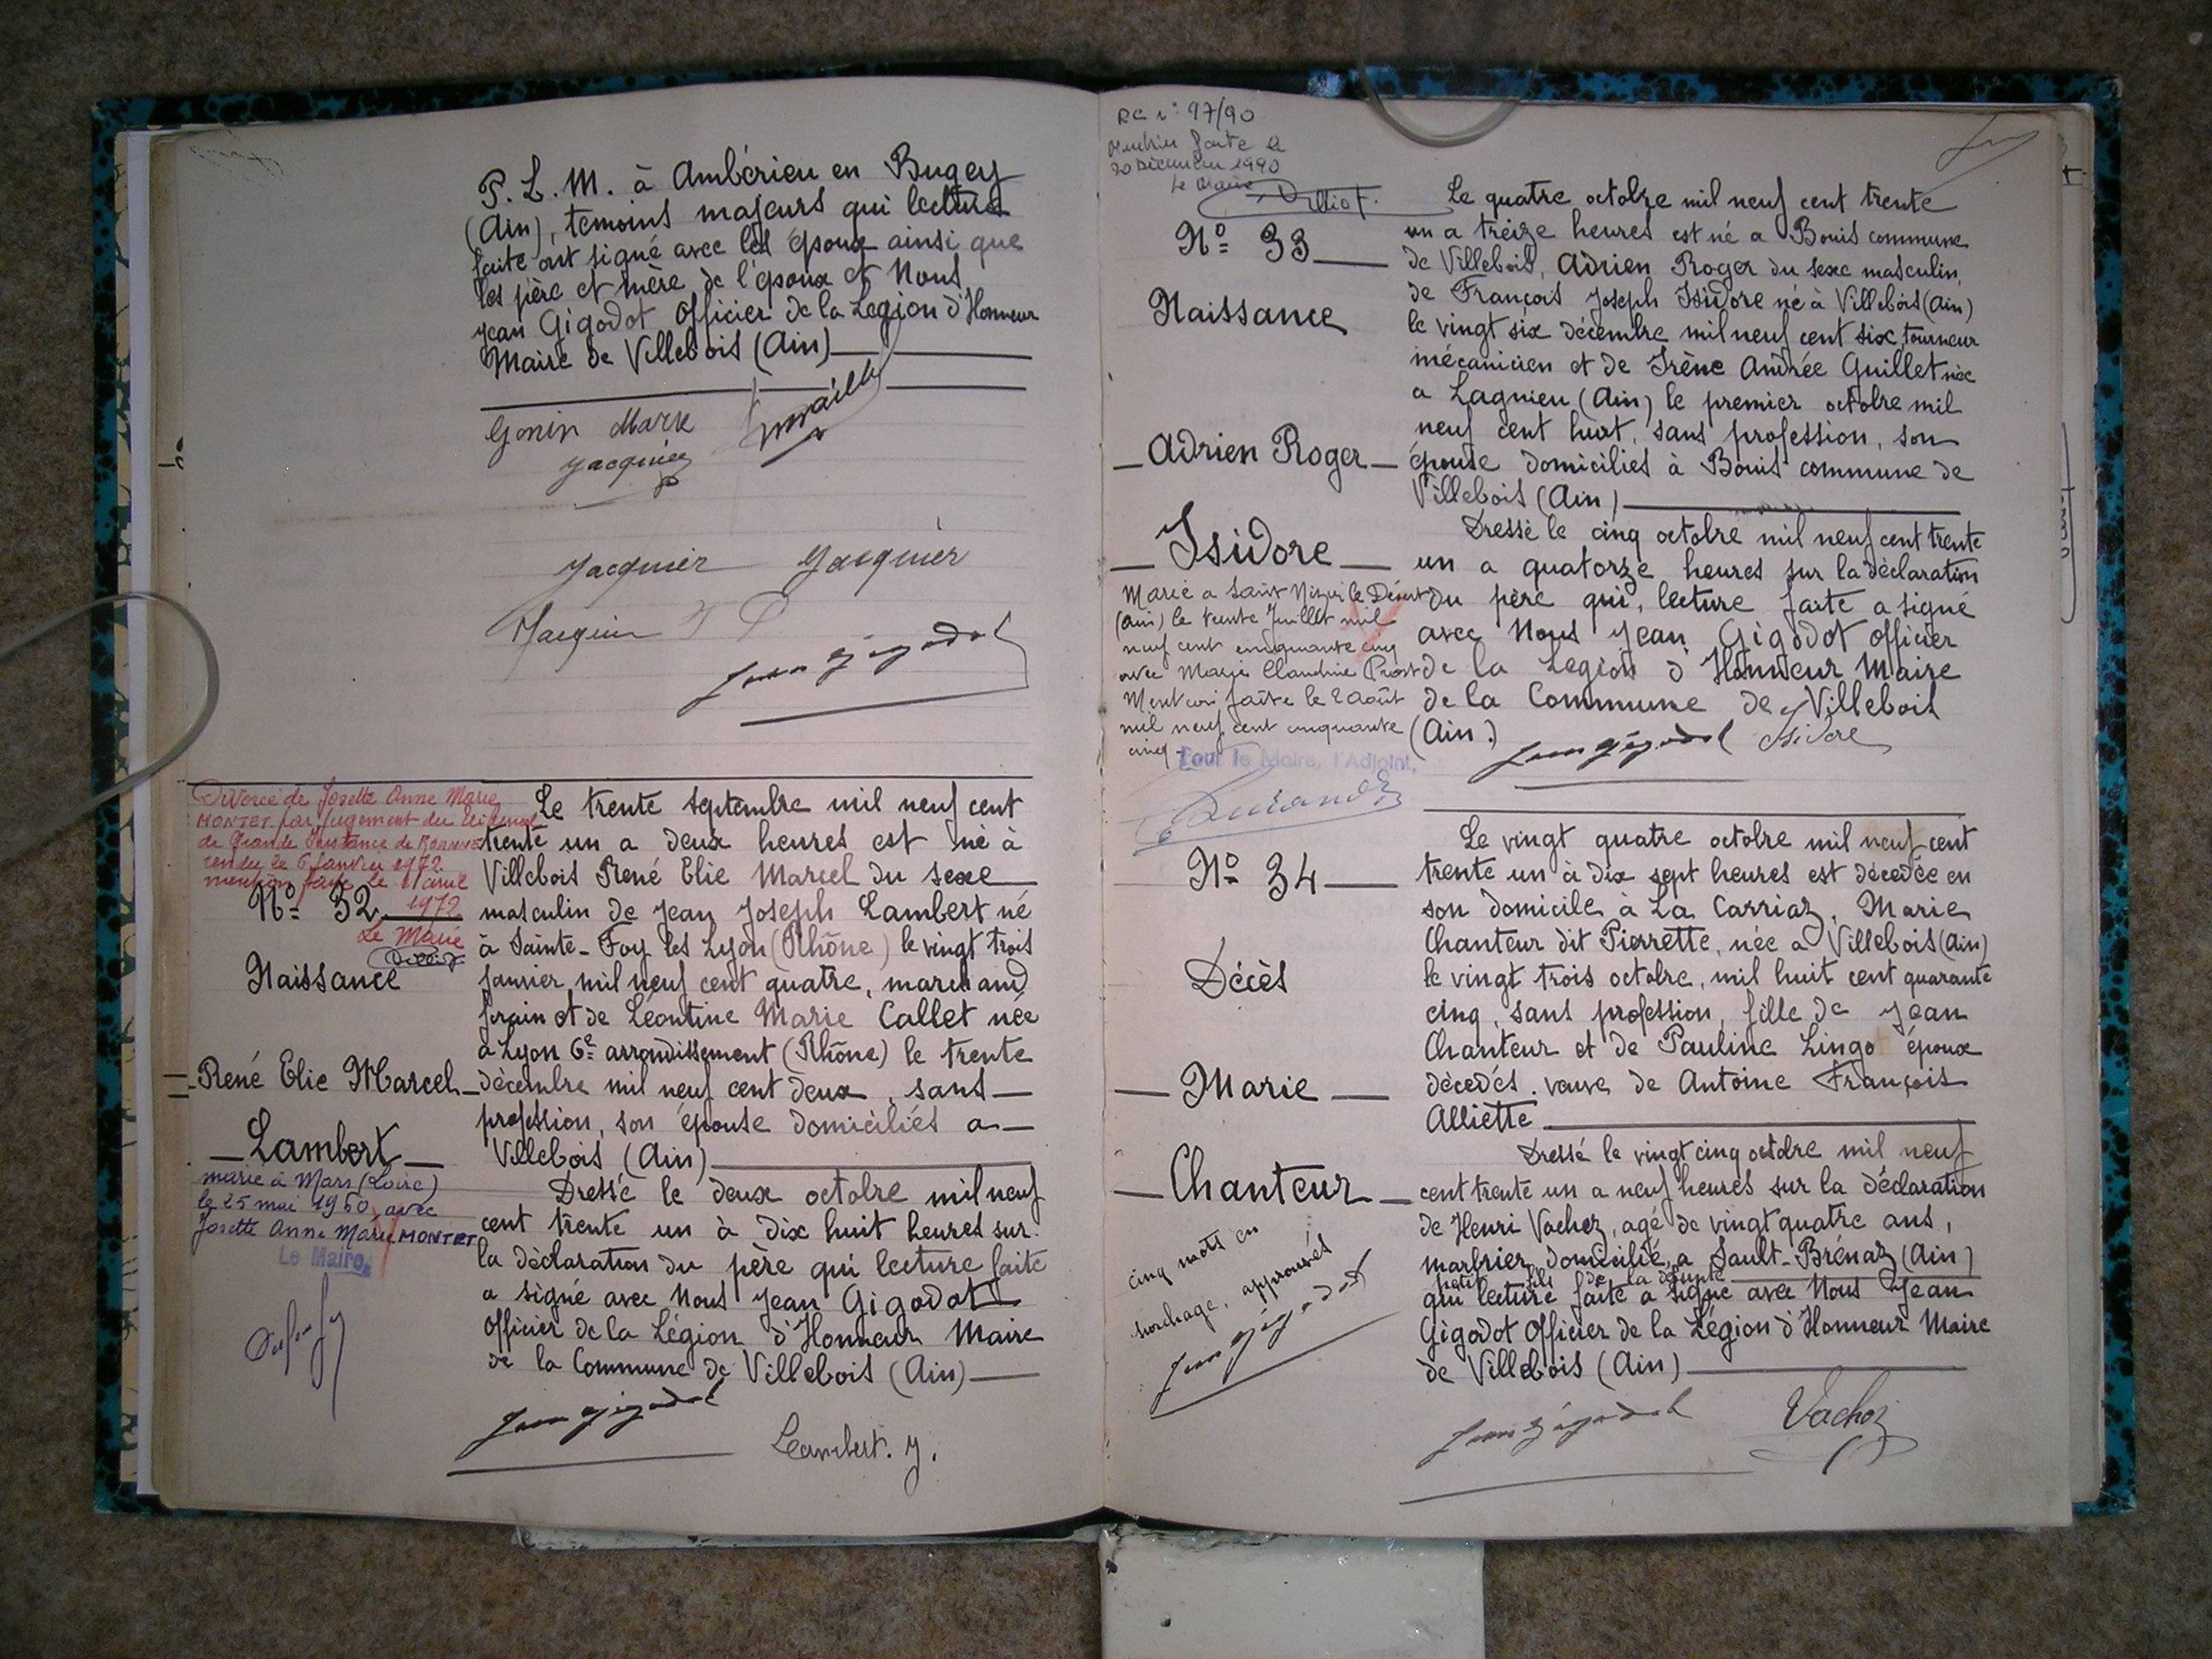 P. L. M. à Ambérieu en Bugey
(Ain), temoins majeurs qui lecture
faite ont signé avec les époux ainsi que
les père et mère de l'époux et Nous
Jean Gigodot Officier de la Légion d'Honneur
Maire de Villebois (Ain)
Gonin Marie
Jacquier
Jacquier Jacquier
Jacquier
Jean Gigodot
Divorcé de Josette Anne Marie
MONTET par jugement du tribunal
de Grande Instance de ROANNE
rendu le 6 Janvier 1972
mention faite le
1972
Le Maire
N° 32
Naissance
René Elie Marcel
Lambert
marié à Mars (Loire)
le 25 mai 1960 avec
Josette Anne Marie MONTET
Le Maire,
Le trente septembre mil neuf cent
trente un a deux heures est né à
Villebois René Elie Marcel du sexe
masculin de Jean Joseph Lambert né
à Sainte-Foy les Lyon (Rhône) le vingt trois
janvier mil neuf cent quatre, marchand
forain et de Léontine Marie Callet née
a Lyon 6e arrondissement (Rhône) le trente
décembre mil neuf cent deux, sans
profession, son épouse domiciliés a
Villebois (Ain)
Dressé le deux octobre mil neuf
cent trente un à dix huit heures sur
la déclaration du père qui lecture faite
a signé avec Nous Jean Gigodot
Officier de la Légion d'Honneur Maire
de la Commune de Villebois (Ain)
Jean Gigodot
Lambert. J.
RC n° 97/90
Mention faite le
20 Décembre 1990
Le Maire
N° 33
Naissance
Adrien Roger
Isidore
Marié a Saint Nizier le Désert
(Ain) le trente Juillet mil
neuf cent cinquante cinq
avec Marie Claudine Prost
Mention faite le 2 août
mil neuf cent cinquante
cinq.
Pour le Maire, l'Adjoint,
Durand
Le quatre octobre mil neuf cent trente
un a treize heures est né a Bouis commune
de Villebois, Adrien Roger du sexe masculin,
de François Joseph Isidore né à Villebois (Ain)
le vingt six décembre mil neuf cent six, tourneur
mécanicien et de Irène Andrée Guillet née
a Lagnieu (Ain) le premier octobre mil
neuf cent huit, sans profession, son
épouse domiciliés à Bouis commune de
Villebois (Ain)
Dressé le cinq octobre mil neuf cent trente
un a quatorze heures sur la déclaration
du père qui, lecture faite a signé
avec Nous Jean Gigodot officier
de la Légion d'Honneur Maire
de la Commune de Villebois
(Ain.)
Jean Gigodot Isidore
N° 34
Décès
Marie
Chanteur
cinq mots en
surchage, approuvés
Jean Gigodot
Le vingt quatre octobre mil neuf cent
trente un à dix sept heures est décedée en
son domicile à La Carriaz, Marie
Chanteur dit Pierrette, née a Villebois (Ain)
le vingt trois octobre, mil huit cent quarante
cinq, sans profession, fille de Jean
Chanteur et de Pauline Lingo époux
décedés. veuve de Antoine François
Alliette
Dressé le vingt cinq octobre mil neuf
cent trente un a neuf heures sur la déclaration
de Henri Vachez, agé de vingt quatre ans,
marbrier, domicilié, a Sault-Brénaz (Ain)
petit fils de la défunte
qui lecture faite a signé avec Nous Jean
Gigodot Officier de la Légion d'Honneur Maire
de Villebois (Ain)
Jean Gigodot Vachez